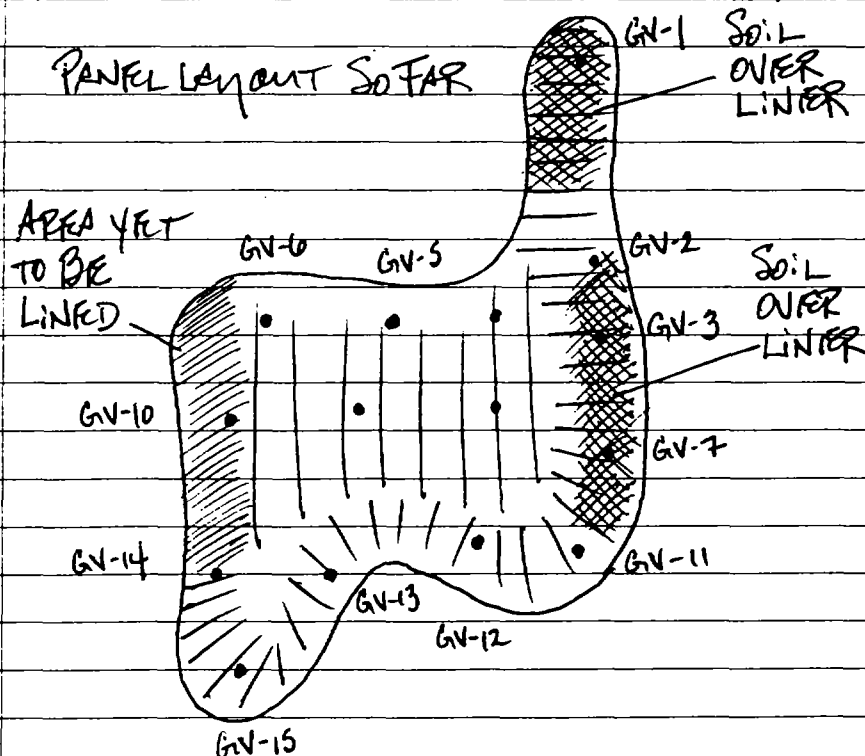 PANEL LAYOUT SO FAR
GV-1
SOIL
OVER
LINIER
AREA YET
TO BE
LINED
GV-6
GV-5
GV-2
SOIL
OVER
LINIER
GV-3
GV-10
GV-7
GV-14
GV-11
GV-13
GV-12
GV-15